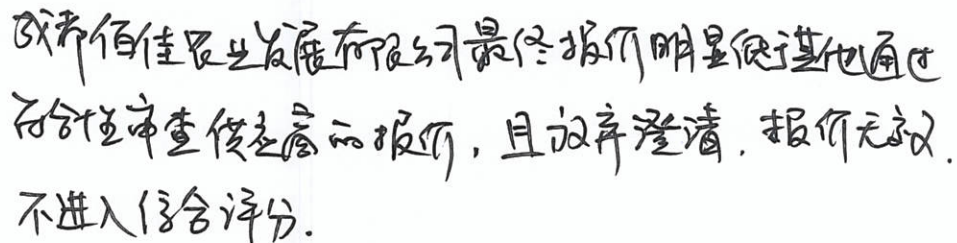 成都佰佳农业发展有限公司最终报价明显低于其他通过
符合性审查供应商的报价，且放弃澄清，报价无效.
不进入综合评分.